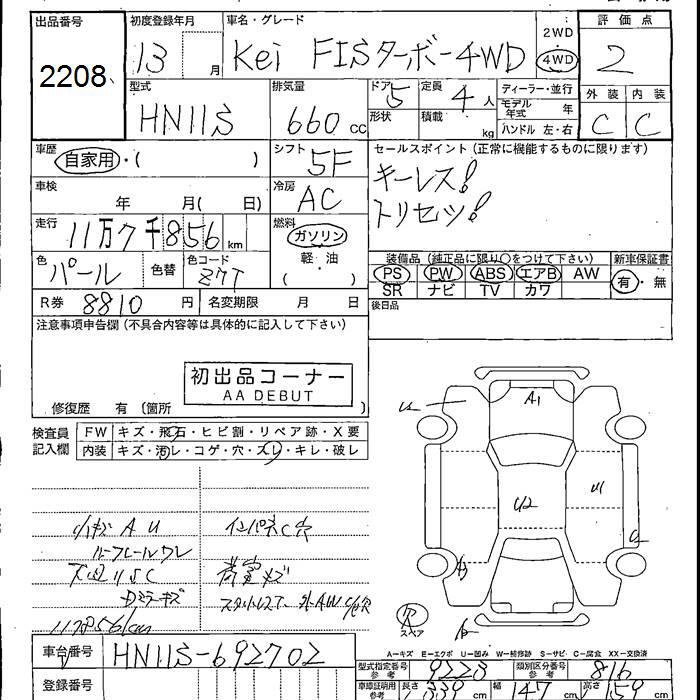 出品番号 初度登録年月 車名・グレード 評価点
2208 13 月 Kei FISターボ-4WD 2WD 4WD 2
型式 排気量 ドア 5 定員 4 人 ディーラー・並行 外装 内装
HN11S 660 cc 形状 積載 kg モデル年式 年 C C
ハンドル 左・右
車歴 シフト セールスポイント(正常に機能するものに限ります)
自家用・( ) 5F キーレス!
車検 冷房 トリセツ!
年 月( 日) AC
走行 燃料
11万7千856 km ガソリン
軽・油
( )
色 パール 色替 色コード Z7T 装備品(純正品に限り○をつけて下さい) 新車保証書
PS PW ABS エアB AW 有・無
SR ナビ TV カワ
R券 8810 円 名変期限 月 日 後日品
注意事項申告欄(不具合内容等は具体的に記入して下さい)
初出品コーナー
AA DEBUT
修復歴 有(箇所 )
検査員記入欄 FW キズ・飛石・ヒビ割・リペア跡・X要
内装 キズ・汚レ・コゲ・穴・スレ・キレ・破レ
A1
U2
インパネC穴
ルーフレールワレ
Dミラーキズ
117856km
スペア
A=キズ E=エクボ U=凹み W=補修跡 S=サビ C=腐食 XX=交換済
車台番号 HN11S-692702
型式指定番号 参考 9223 類別区分番号 参考 816
登録番号 車庫証明用 参考 長さ 339 cm 幅 147 cm 高さ 159 cm